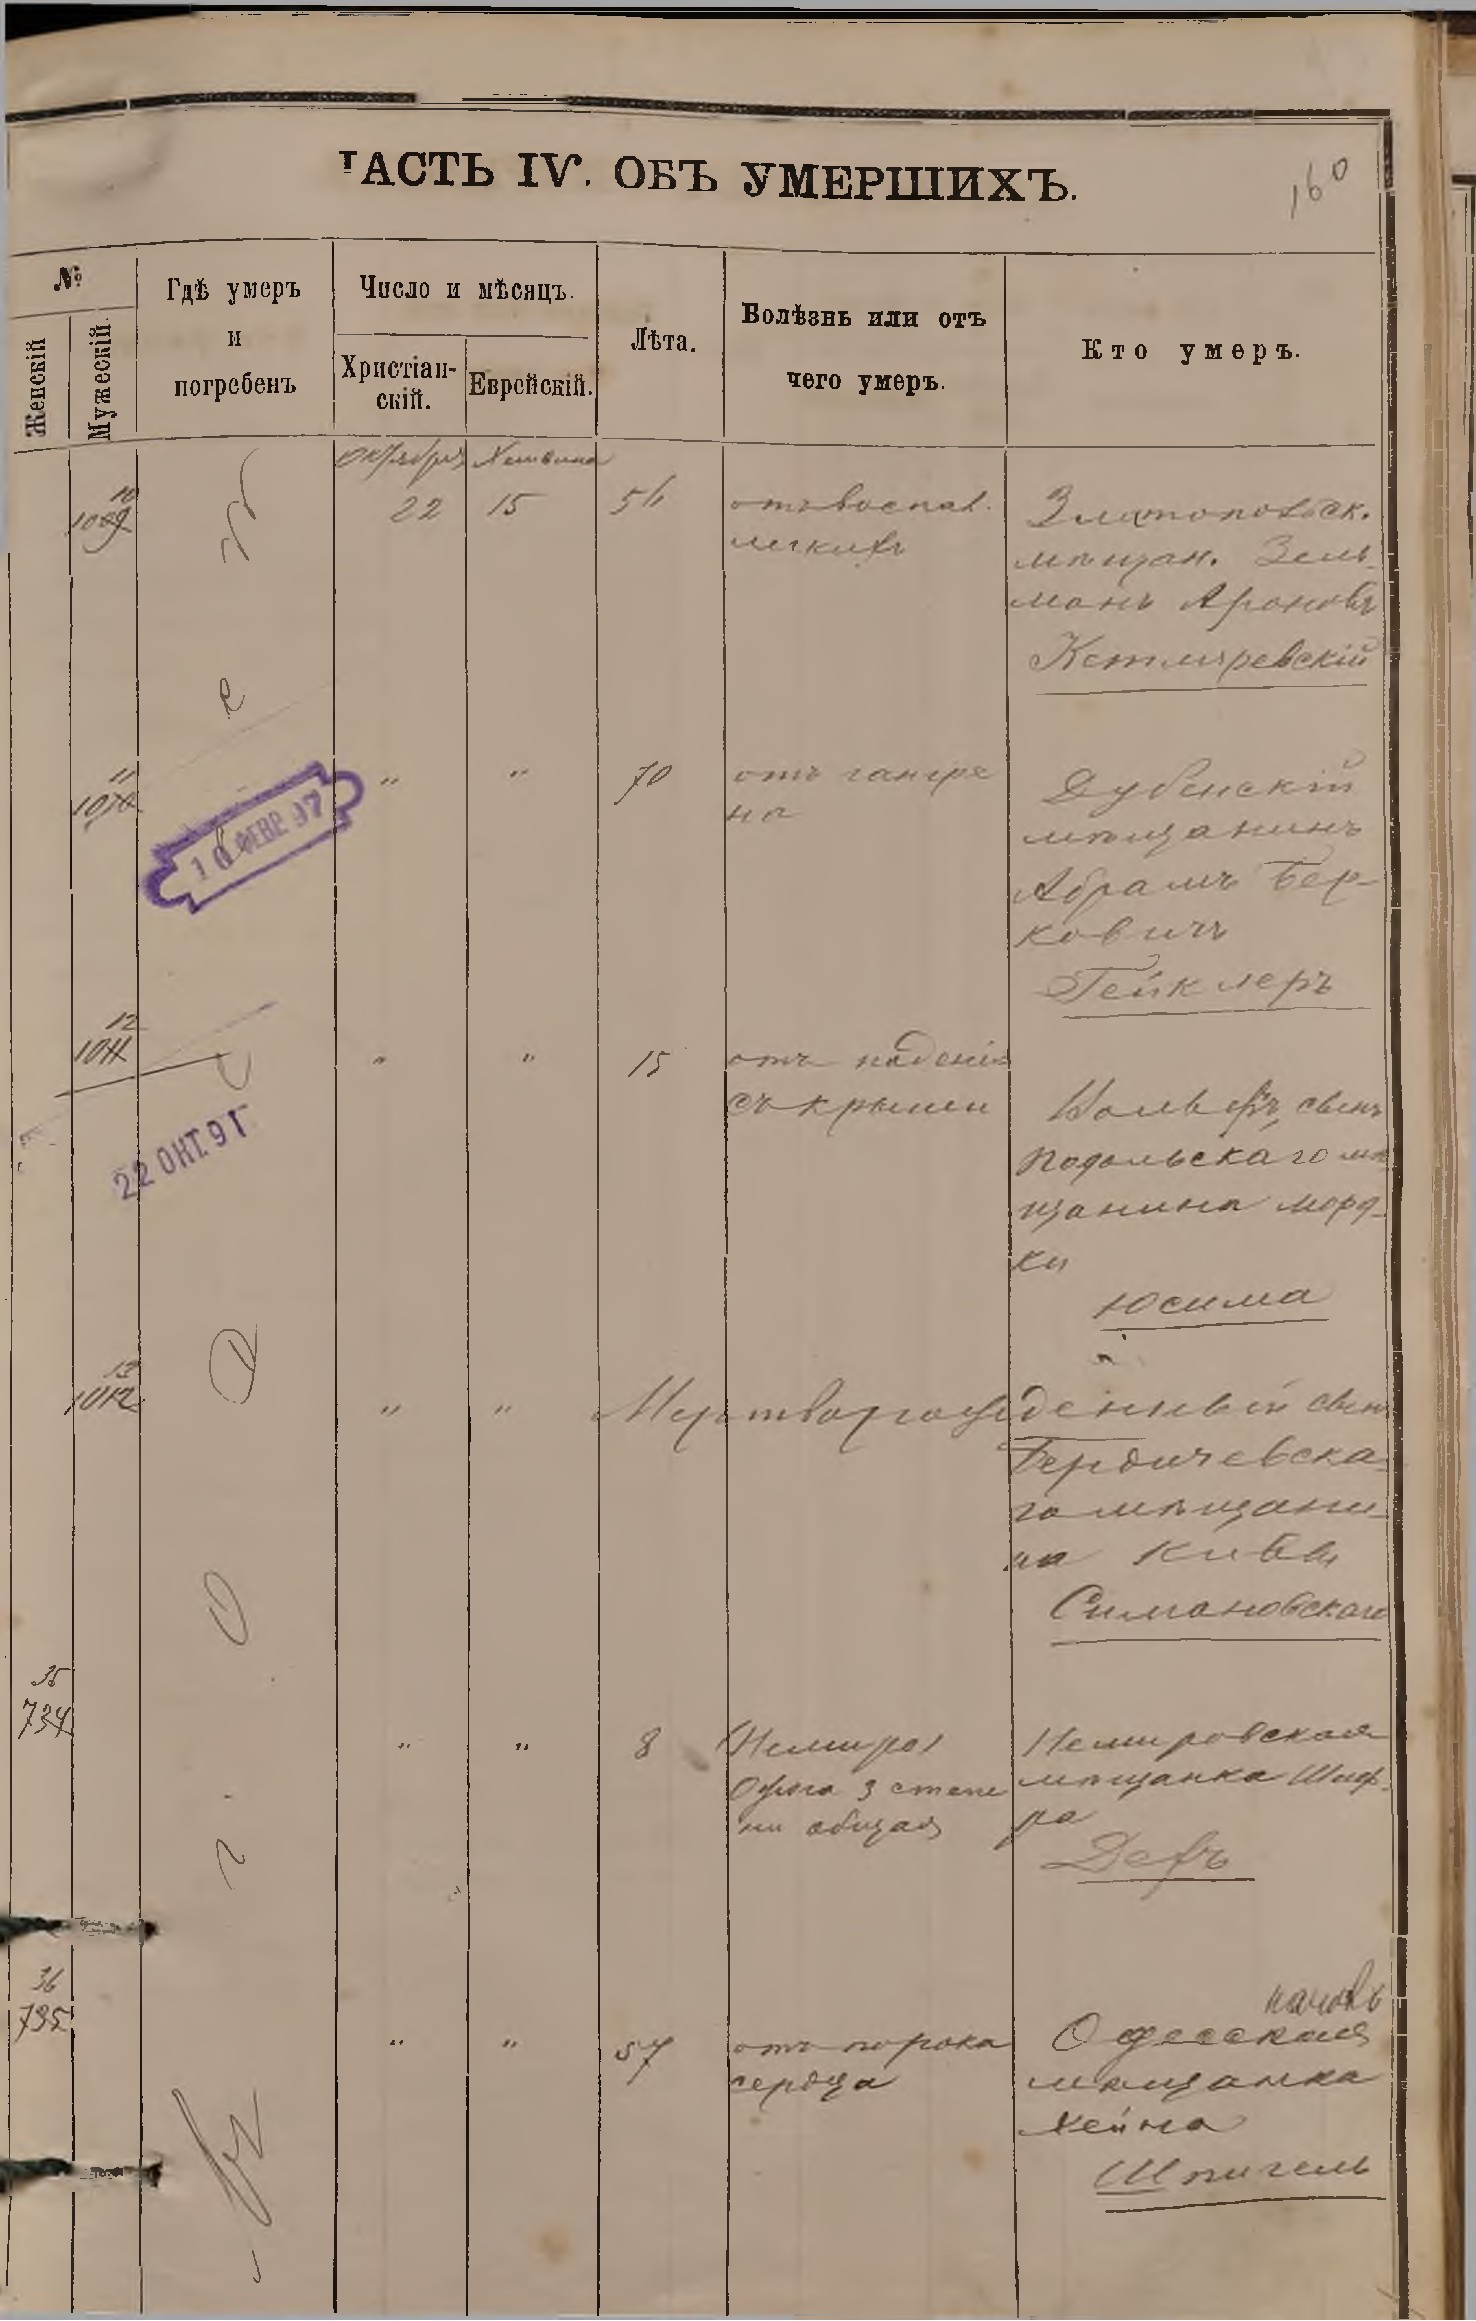 ЧАСТЬ IV. ОБЪ УМЕРШИХЪ.
160
№
Женскій
Мужескій
Гдѣ умеръ
и
погребенъ
Число и мѣсяцъ.
Христіан-
скій.
Еврейскій.
Лѣта.
Болѣзнь или отъ
чего умеръ.
Кто умеръ.
Октября Хешвина
10
1009
22 15 56
отъ воспал.
легкихъ
Златопольск.
мѣщан. Зель-
манъ Ароновъ
Котляревскій
11
1010
" " 70
отъ гангре
на
Дубенскій
мѣщанинъ
Абрамъ Бер-
ковичъ
Гейклеръ
10 ФЕВР 97
12
1011
" " 15
отъ паденія
съ крыши
Вольфъ, сынъ
Подольскаго мѣ
щанина Морд-
ки
Юсима
22 ОКТ. 91
13
1012
" " Мертворожденный сынъ
Бердичевска-
го мѣщани-
на Кивы
Симановскаго
35
734
" " 8
Ожога 3 степе
ни общая
Немировская
мѣщанка Шиф-
ра
36
735
" " 57
отъ порока
сердца
Одесская
мѣщанка
Хейна
Шпигель